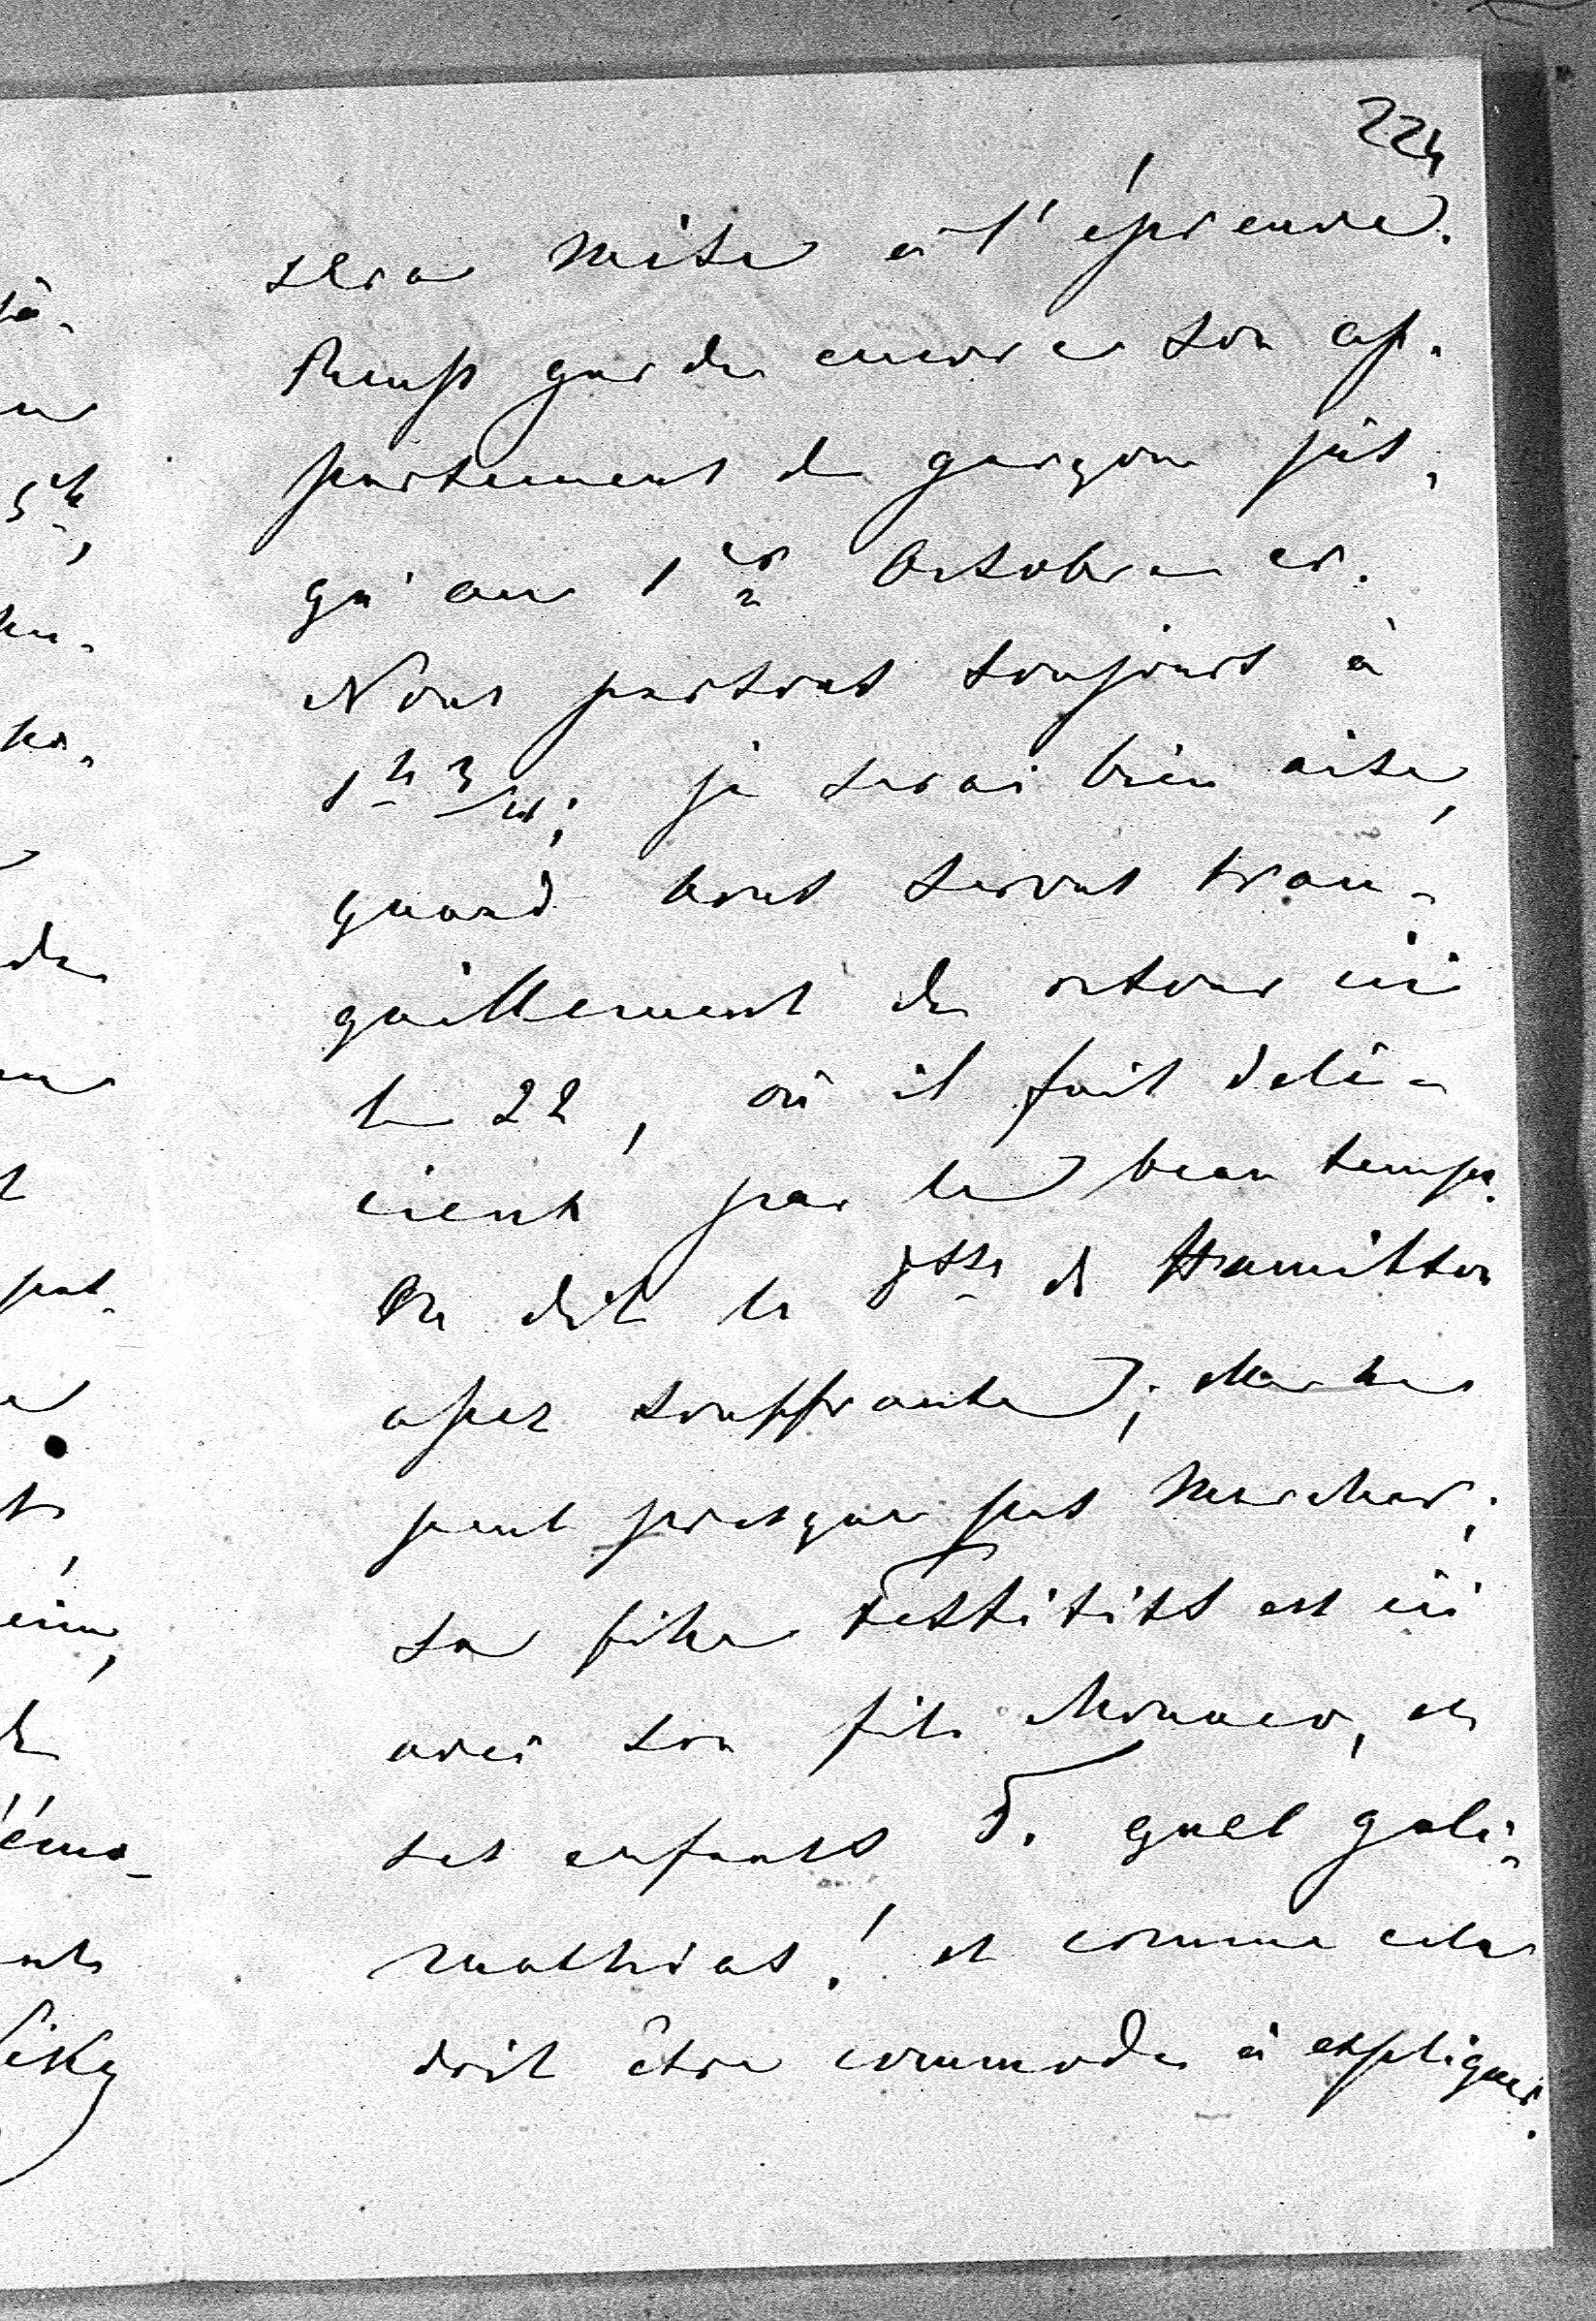 224
sera mise à l'épreuve.
Reuss garde encore son ap-
partement de garçon jus-
qu'au 1er Octobre cr.
Nous partons toujours à
1h 3/4; je serai bien aise,
quand vous serons tran-
quillement de retour ici
le 22, où il fait déli-
cieux par le beau temps.
On dit la dsse de Hamilton
assez souffrante; elle
peut presque pas marcher;
sa fille Festitits est ici
avec son fils Monaco, et
ses enfants F. quel gali-
mathias! et comme cela
doit être commode à expliquer.